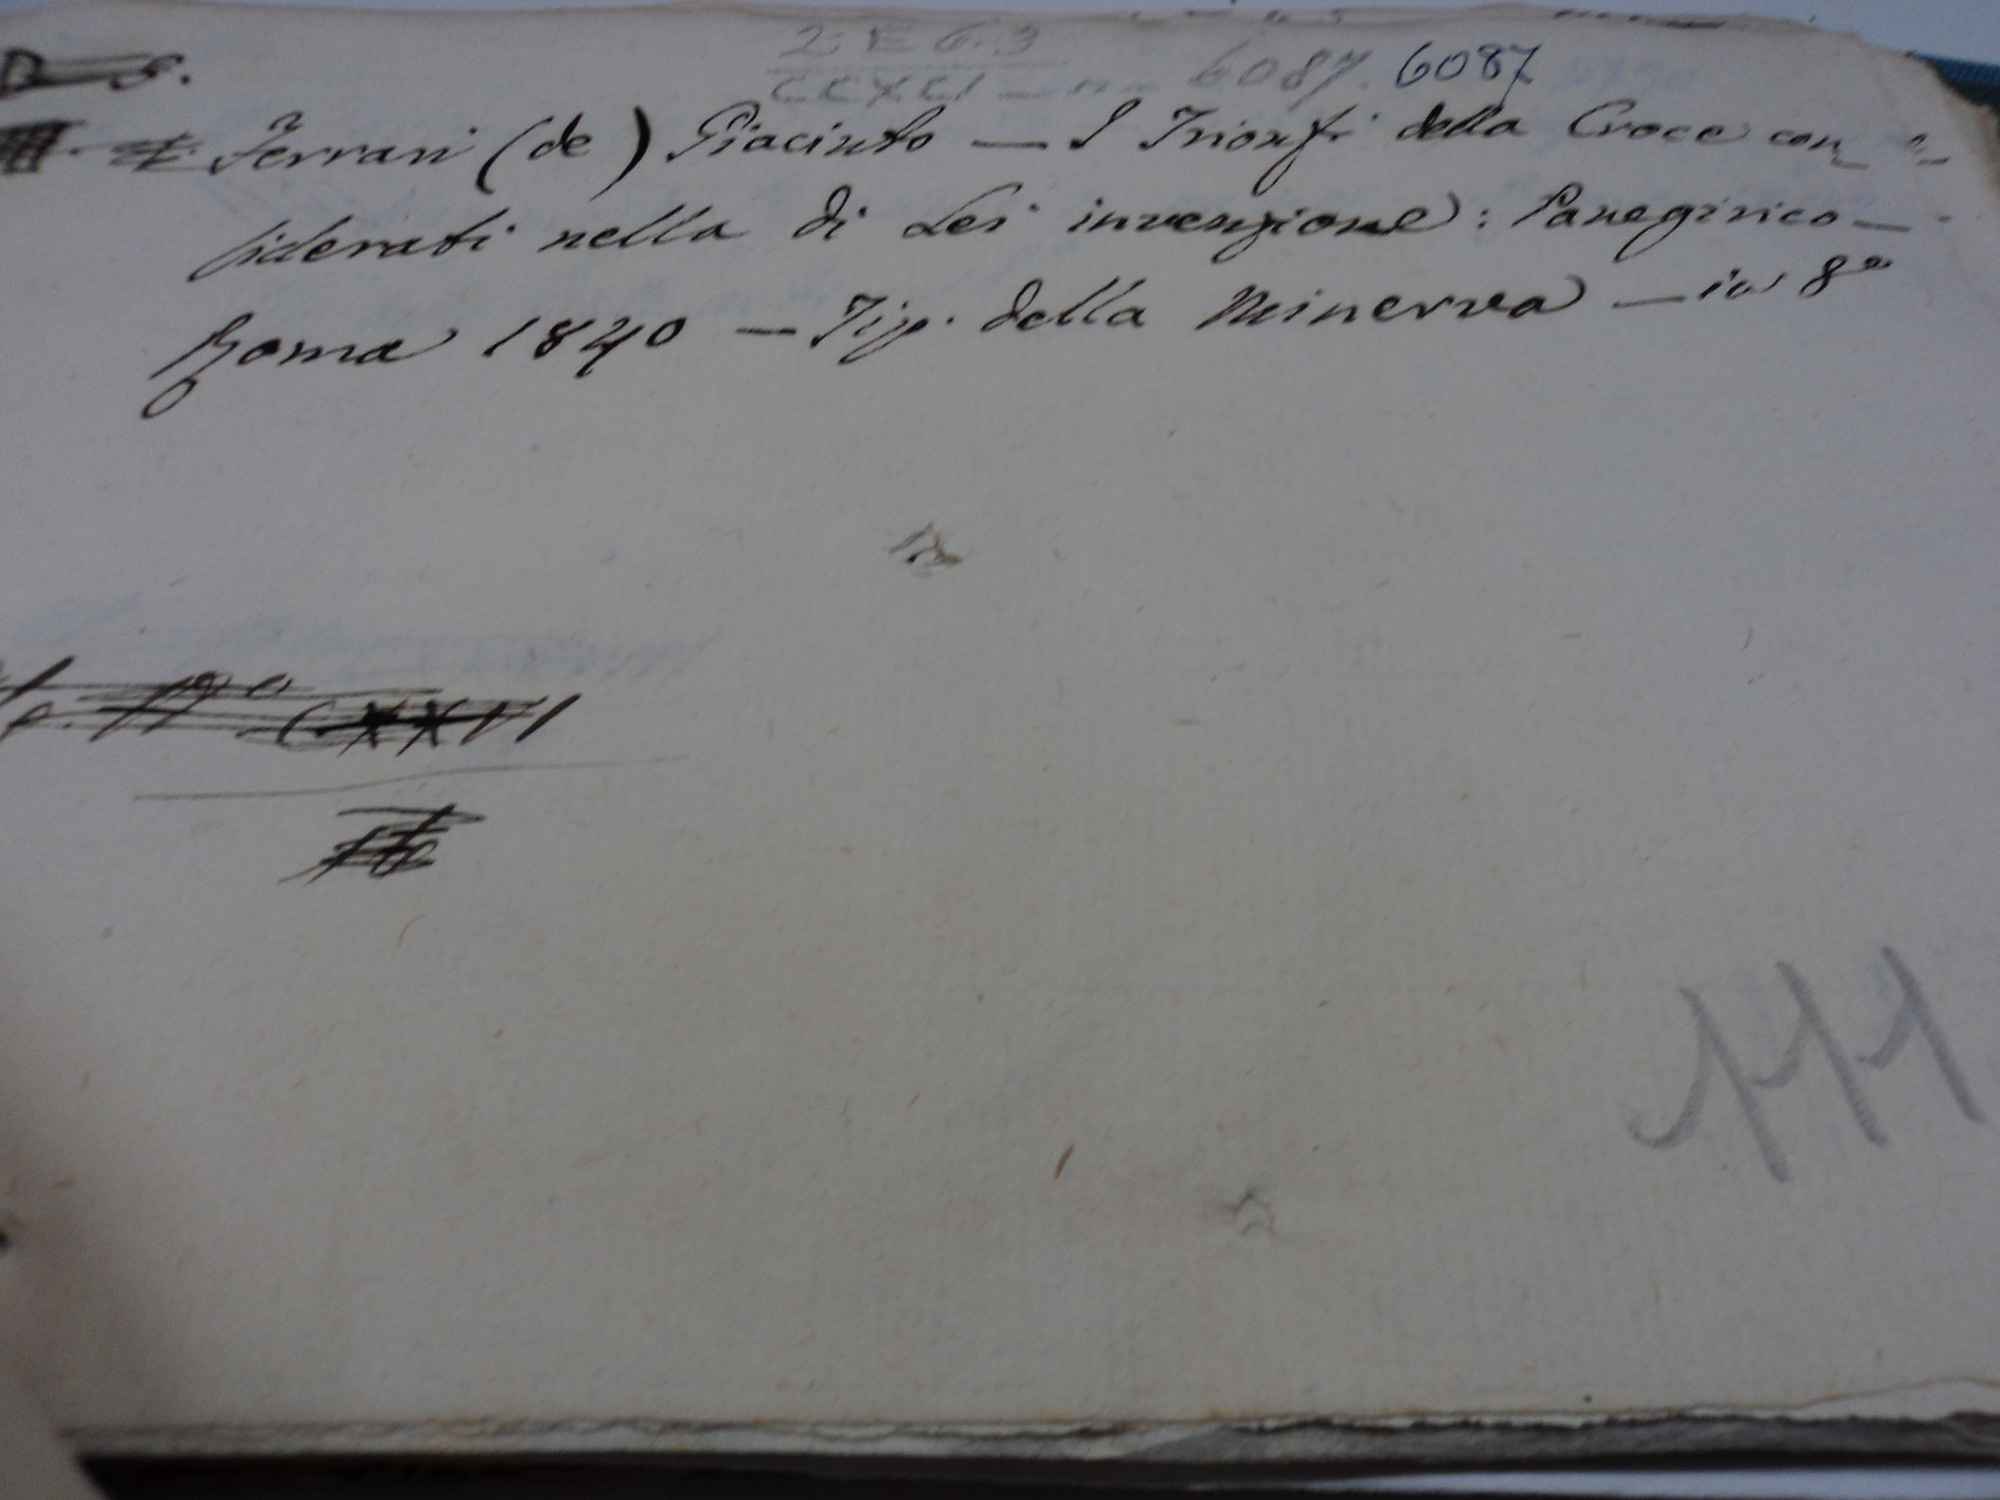 2 E 6.3
CCXCI 6087. 6087
Ferrari (de) Giacinto — I Trionfi della Croce con=
siderati nella di Lei invenzione: Panegirico —
Roma 1840 — Tip. della Minerva — in 8º
CXXVI
111